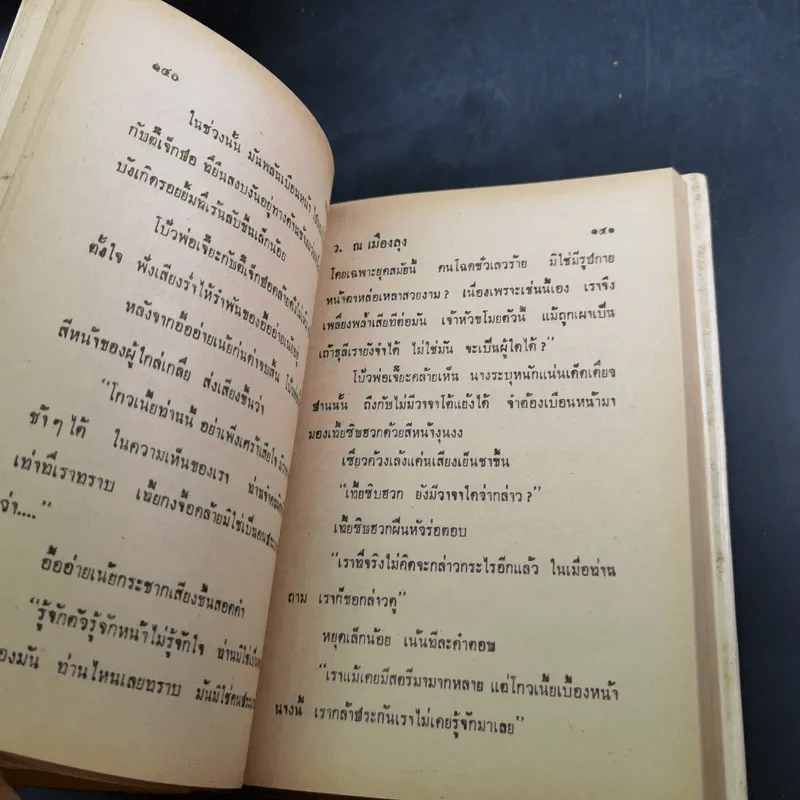 ๑๔๐
ในช่วงนั้น มันพลันเบือนหน้า
กับตี้เจ็กฮอ ที่ยืนสงบงันอยู่ทางด้านข้าง
บังเกิดรอยยิ้มที่เร้นลับขึ้นเล็กน้อย
โป้วพ่อเจี๊ยะกับตี้เจ็กฮอคล้าย
ตั้งใจ ฟังเสียงร่ำไห้รำพันของอื้ออ่ายเนี้ยอยู่
หลังจากอื้ออ่ายเนี้ยก่นด่าจบสิ้น โป้วพ่อ
สีหน้าของผู้ใกล่เกลี่ย ส่งเสียงขึ้นว่า
"โกวเนี้ยท่านนี้ อย่าเพิ่งเศร้าเสียใจ
ช้าๆ ได้ ในความเห็นของเรา ท่าน
เท่าที่เราทราบ เทียกงจื้อคล้ายมิใช่เป็นคน
ว่า...."
อื้ออ่ายเนี้ยกระชากเสียงขึ้นสอดคำ
"รู้จักตัวรู้จักหน้าไม่รู้จักใจ ท่านมิใช่เป็น
องมัน ท่านไหนเลยทราบ มันมิใช่คน
ว. ณ เมืองลุง
๑๔๑
โดยเฉพาะยุคสมัยนี้ คนโฉดชั่วเลวร้าย มิใช่มีรูปกาย
หน้าตาหล่อเหลาสวยงาม? เนื่องเพราะเช่นนี้เอง เราจึง
เพลี่ยงพล้ำเสียทีต่อมัน เจ้าหัวขโมยตัวนี้ แม้ถูกเผาเป็น
เถ้าธุลีเรายังจำได้ ไม่ใช่มัน จะเป็นผู้ใดได้?"
โป้วพ่อเจี๊ยะคล้ายเห็น นางระบุหนักแน่นเด็ดเดี่ยว
ปานนั้น ถึงกับไม่มีวาจาโต้แย้งได้ จำต้องเบือนหน้ามา
มองเทียซิบฮวกด้วยสีหน้างุนงง
เซียวคังวงเล้งแค่นเสียงเย็นชาขึ้น
"เทียซิบฮวก ยังมีวาจาใดจ่ากล่าว?"
เทียซิบฮวกฝืนหัวร่อตอบ
"เราที่จริงไม่คิดจะกล่าวกระไรอีกแล้ว ในเมื่อท่าน
ถาม เราก็ขอกล่าวดู"
หยุดเล็กน้อย เน้นทีละคำตอบ
"เราแม้เคยมีสตรีมามากหลาย แต่โกวเนี้ยเบื้องหน้า
นางนี้ เรากล้าประกันเราไม่เคยรู้จักมาเลย"